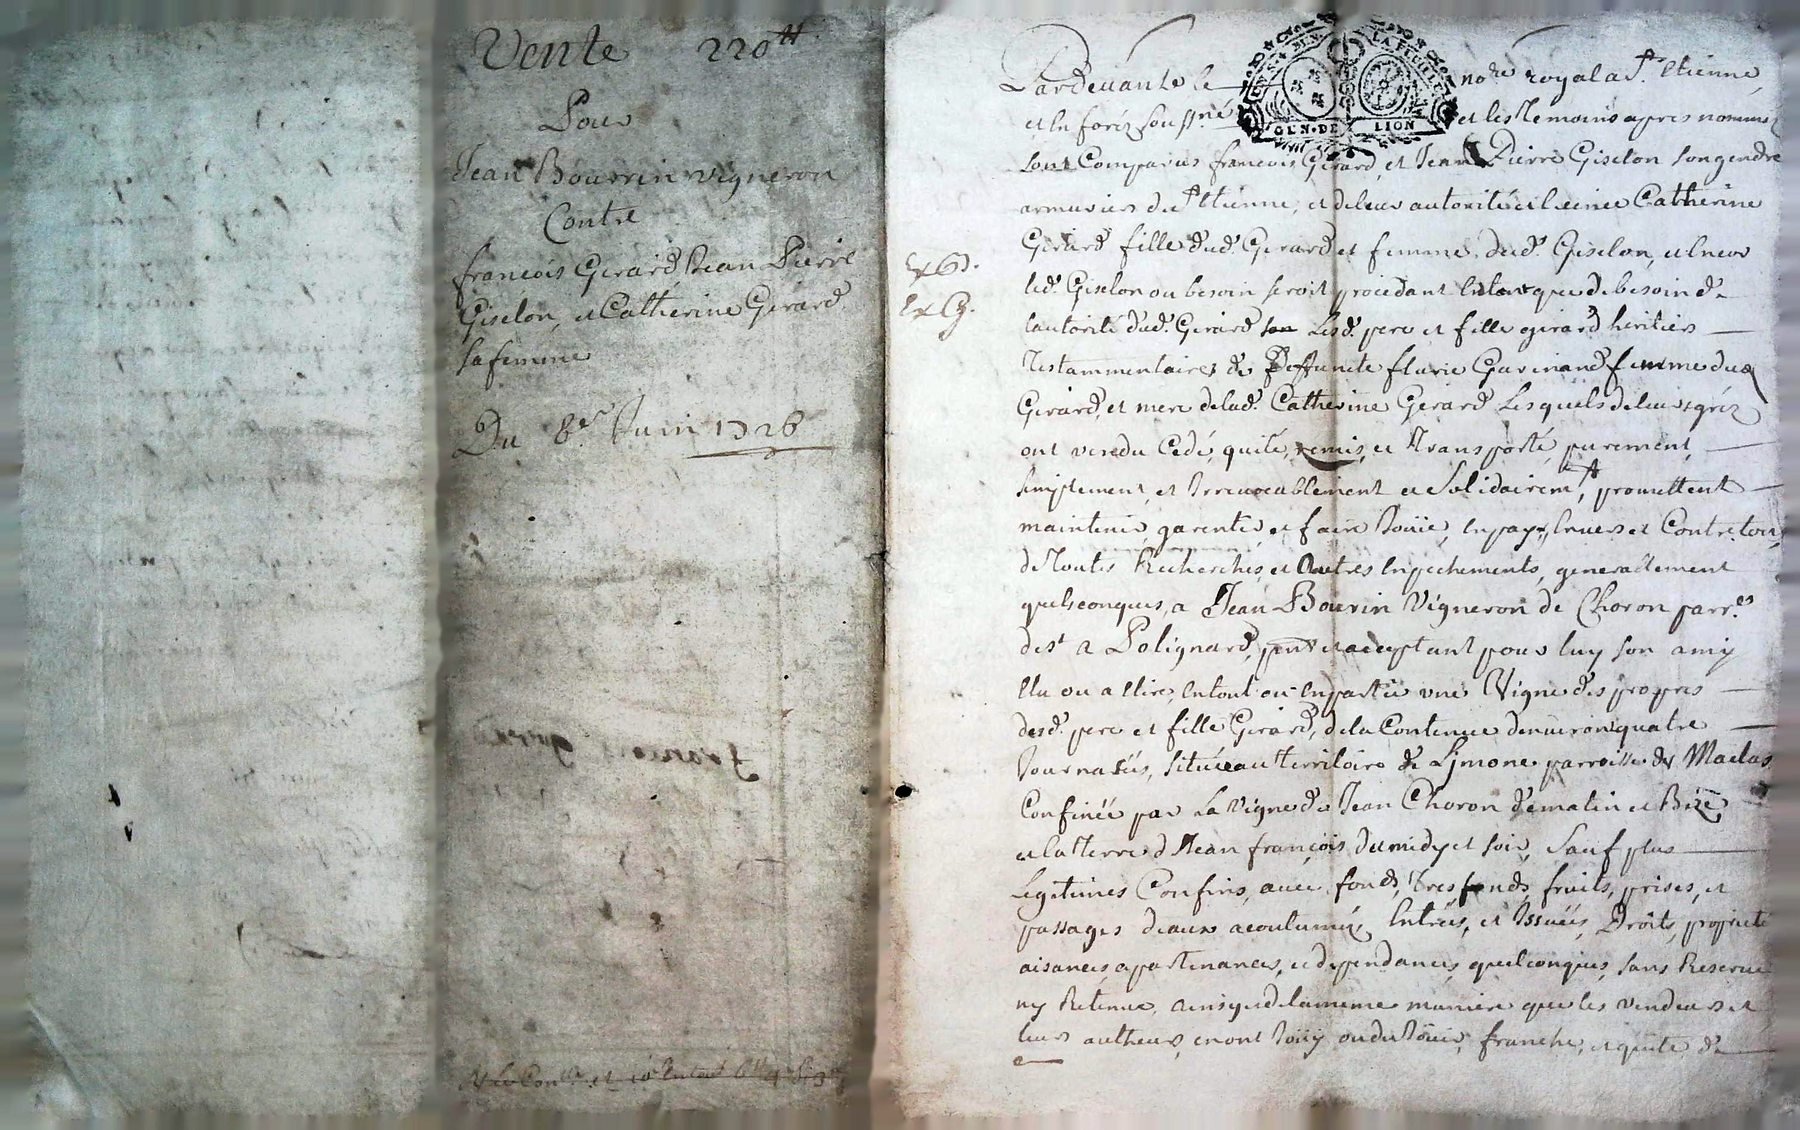 Vente 220tt
Pour
Jean Bourrin vigneron
Contre
francois Gerard Jean Pierre
Giselon, et Catherine Gerard
sa femme
Du 8e. Juin 1726
francois
Pardevant le nore royal a st. Etienne
en forez soussné et les temoins apres nommez
sont Comparus francois Gerard, et Jean Pierre Giselon son gendre
armuriers de st Etienne, et de leur autorité Catherine
Gerard fille dud. Gerard et femme dud. Giselon,
led. Giselon ou besoin seroit procedant entant que de besoin de
lautorité dud. Gerard Lesd. pere et fille gerard heritiers
Testammentaires de Deffuncte flurie Garinand femme dud
Gerard, et mere de lad. Catherine Gerard Lesquels de leurs gréz
ont vendu Cedé, quité, remis, et Transporté, purement,
simplement, et Irrevocablement et Solidairemt, promettent
maintenir, garentir, et faire Jouir, envers et Contre tous,
de Toutes Recherches, et Autres Enpechements, generallement
quelsconques, a Jean Bourrin Vigneron de Choron parr.es
de st a Polignard, pnt et acceptant pour luy son amy
Elu ou a Elire, en tout ou en partie une Vigne des propres
desd. pere et fille Gerard, de la Contenue denviron quatre
Journalées, située au Territoire de Limone parroisse de Maclas
Confinée par La Vigne de Jean Choron de matin et Bize
et la Terre d Jean françois de midy et soir, Sauf plus
Legitimes Confins, avec fonds, Tres fonds, fruits, prises, et
passages deaux acoutuméz, Entrées, et Issuées, Droits, proprieté
aisances, apartenances, et dependances, quelconques, sans Reserve
ny Retenue, ainsy et de la meme maniere que les vendeurs et
leurs autheurs, en ont Jouy ou du Jouir, franche, et quite de